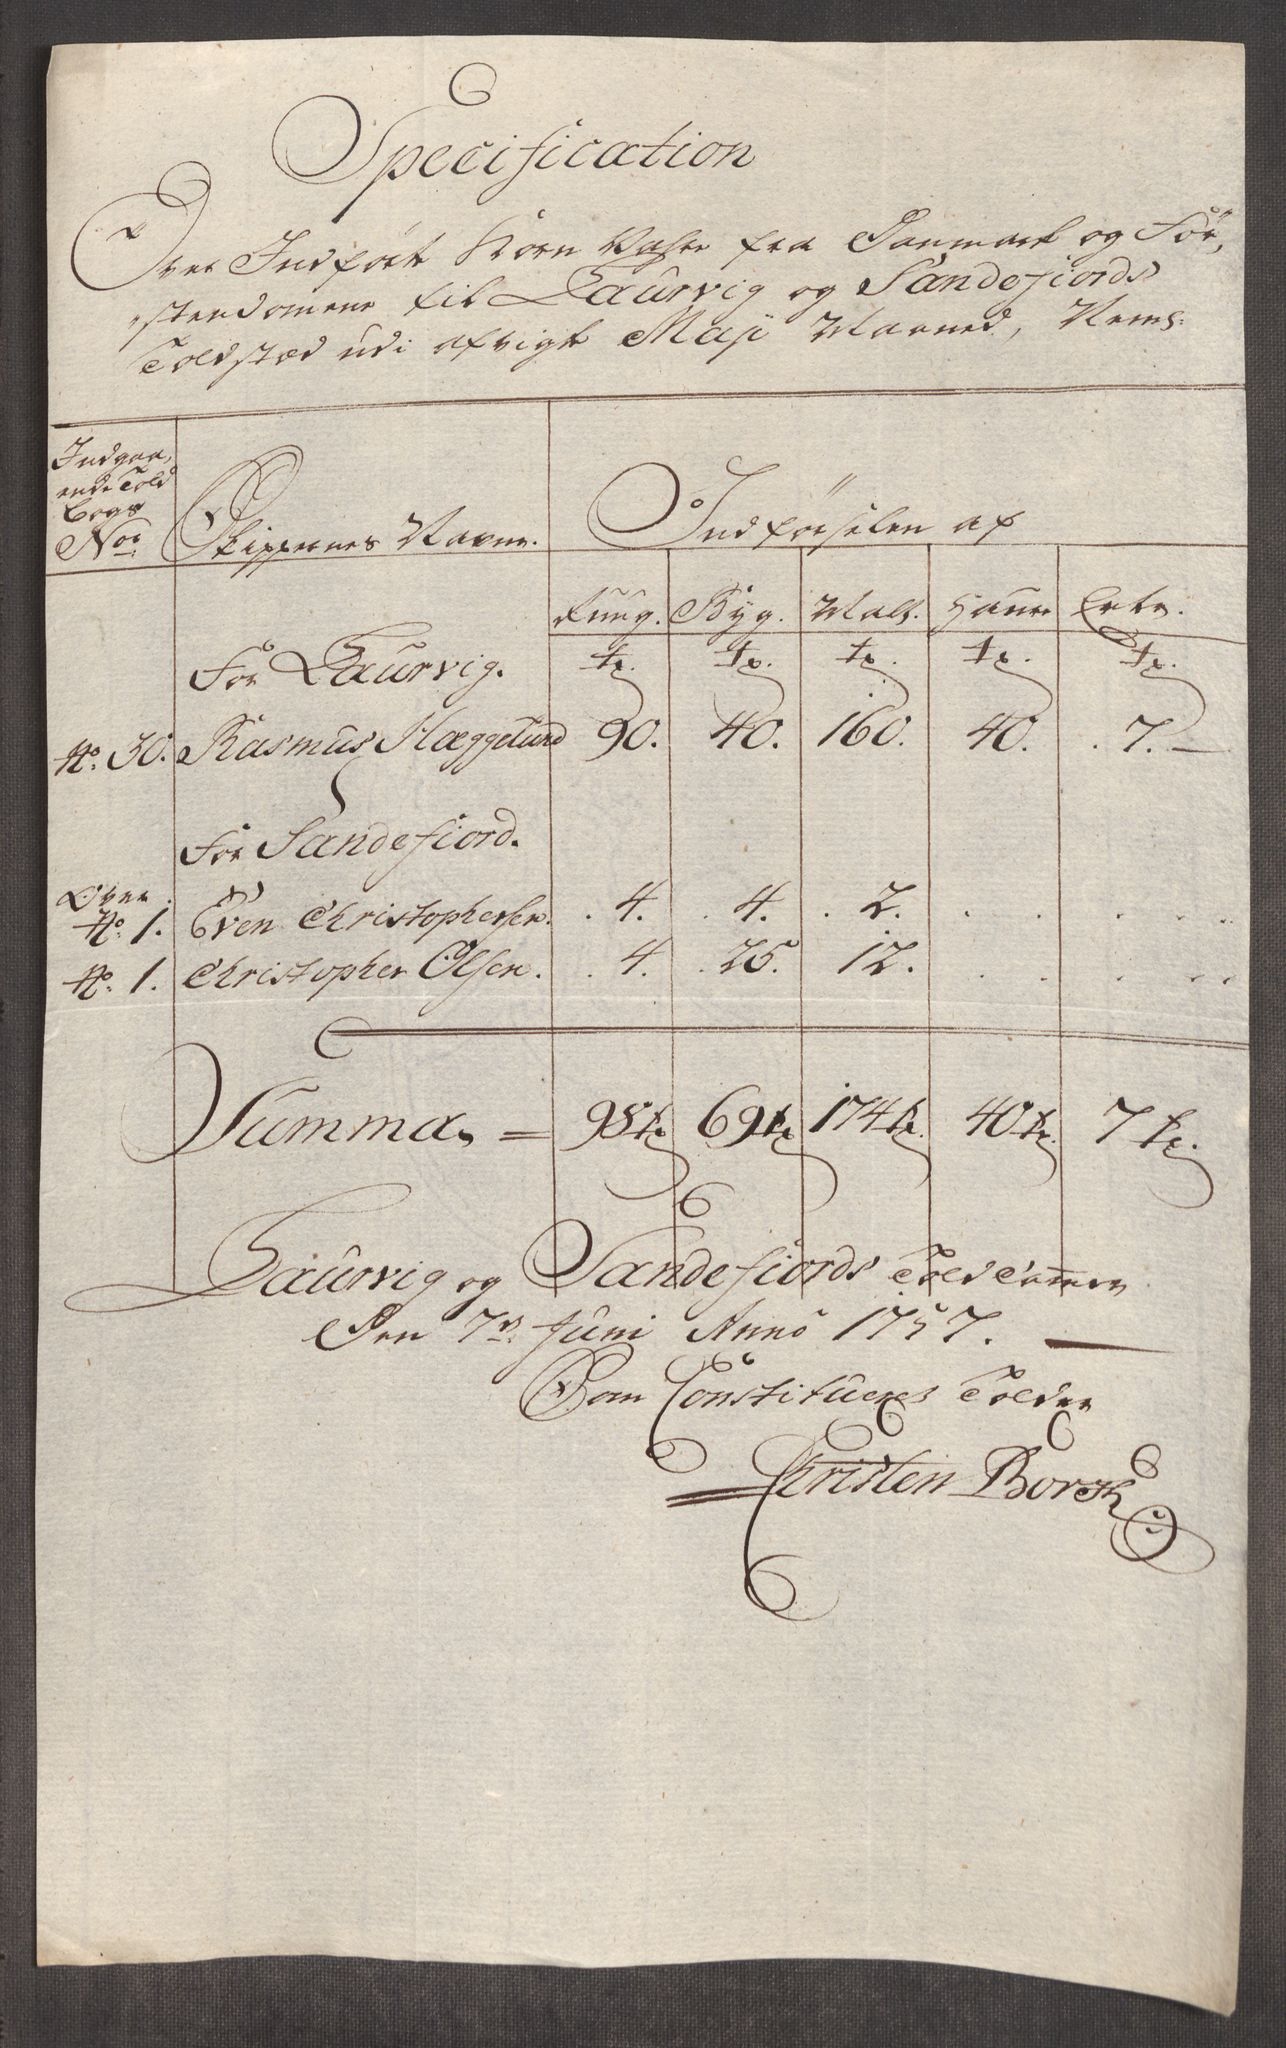 Specification
Over Indført Korn Vahre fra Danmark og Før,,
,,stendomene til Laurvig og Sandefiords
Toldsted udi afvigte Maji Maaned, Nems:
Indgaa,,
ende Told
bogs
Nor. Skippernes Navne. Indførselen af
Rung. Byg. Malt. Haure Erter.
For Laurvig. tr. tr. tr. tr. tr.
No. 30. Rasmus Hæggelund 90. 40. 160. 40. 7.
For Sandefiord.
Øvre
No. 1. Even Christophersen. 4. 4. 2.
No. 1. Christopher Olsen. 4. 25. 12.
Summa = 98 tr. 69 tr. 174 tr. 40 tr. 7 tr.
Laurvig og Sandefiords Told Camer
Den 7de Juni Anno 1757.
Som Constitueret Tolder
Christen Borch